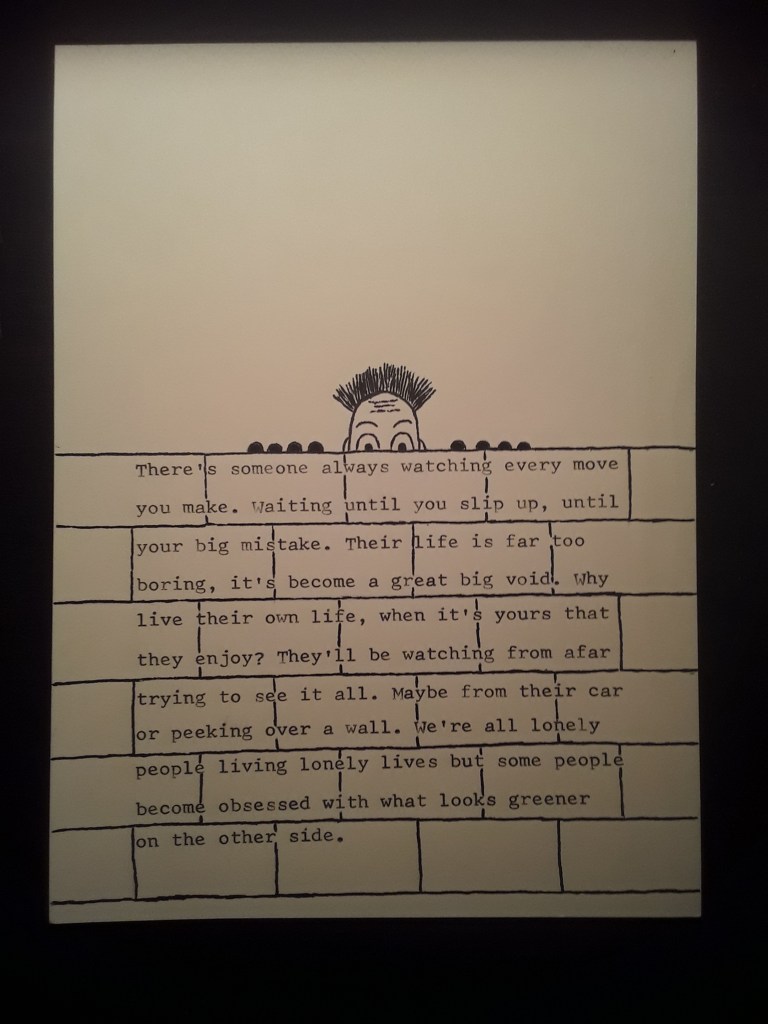 There's someone always watching every move
you make. Waiting until you slip up, until
your big mistake. Their life is far too
boring, it's become a great big void. Why
live their own life, when it's yours that
they enjoy? They'll be watching from afar
trying to see it all. Maybe from their car
or peeking over a wall. We're all lonely
people living lonely lives but some people
become obsessed with what looks greener
on the other side.